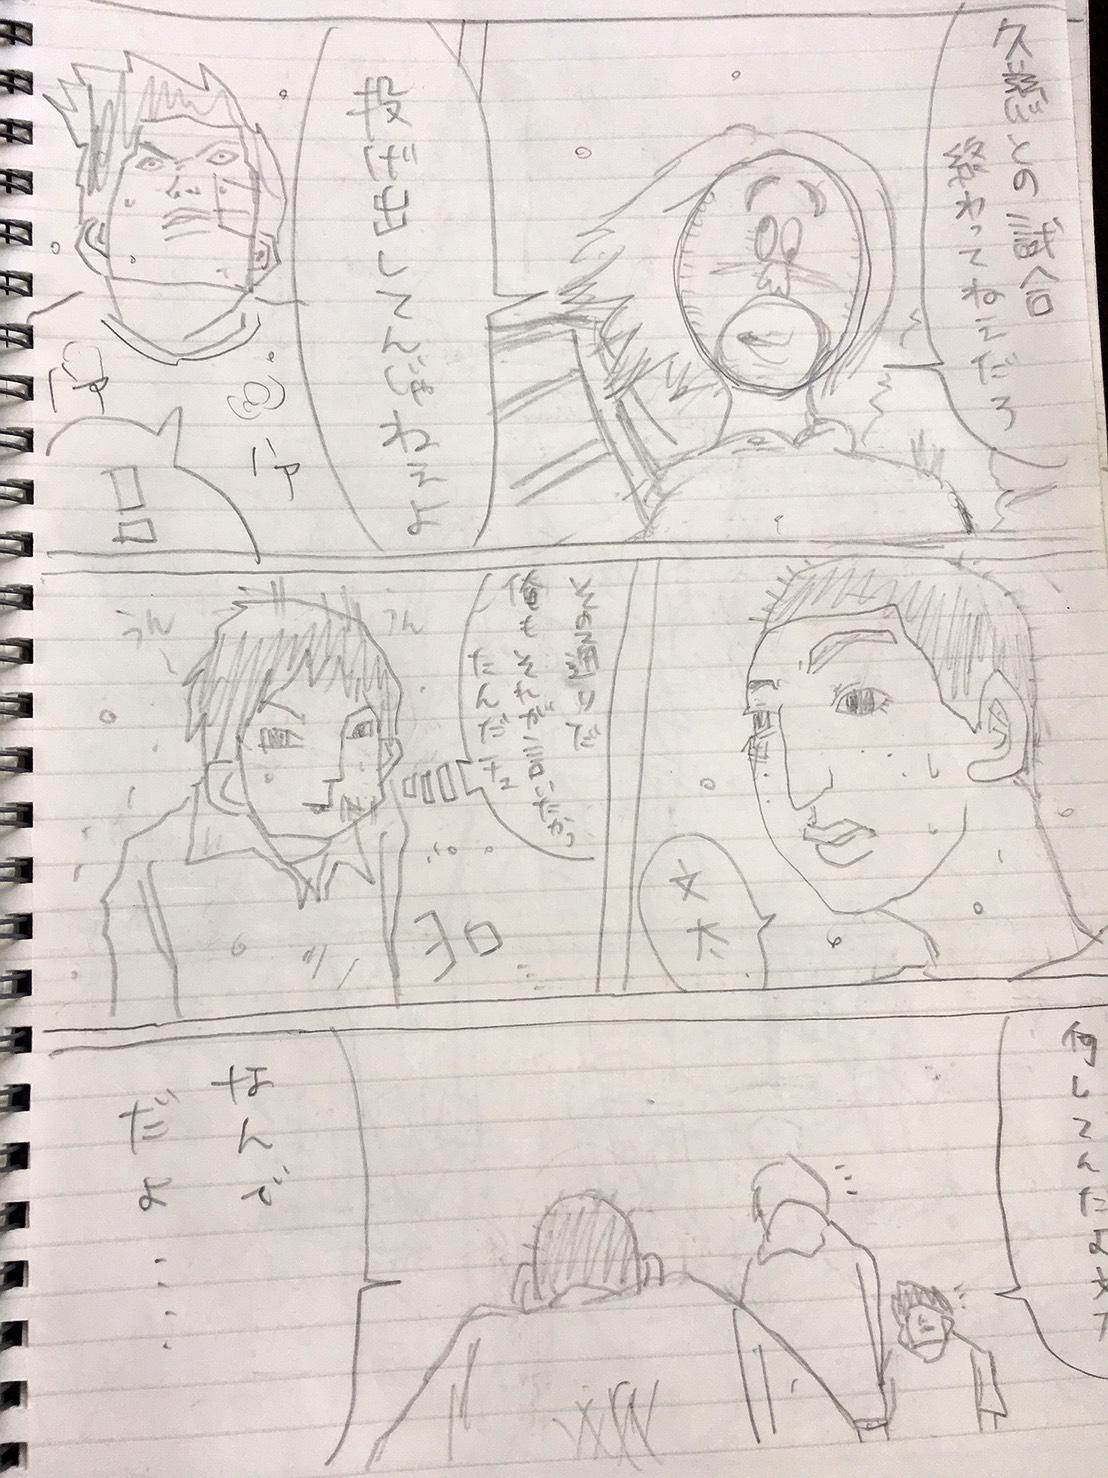 久慈との試合
終わってねえだろ
投げ出してんじゃねえよ
文太
その通りだ
俺もそれが言いたかっ
たんだ
うん
うん
ヨロ
何してんだよ文太
なんで
だよ……